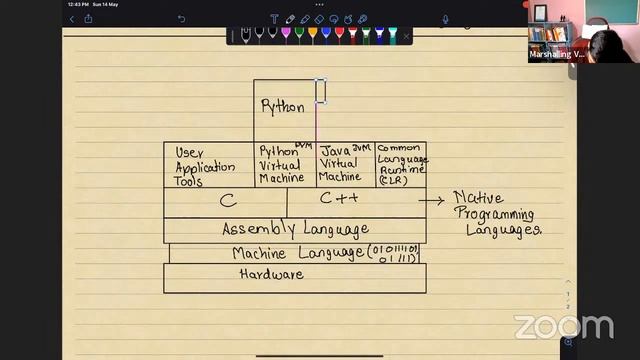 12:43 PM Sun 14 May
Marshalling V...
Python
User
Application
Tools
Python PVM
Virtual
Machine
Java JVM
Virtual
Machine
Common
Language
Runtime
(CLR)
C
C++
Native
Programming
Languages.
Assembly Language
Machine Language (01011101
01111)
Hardware
1
2
zoom